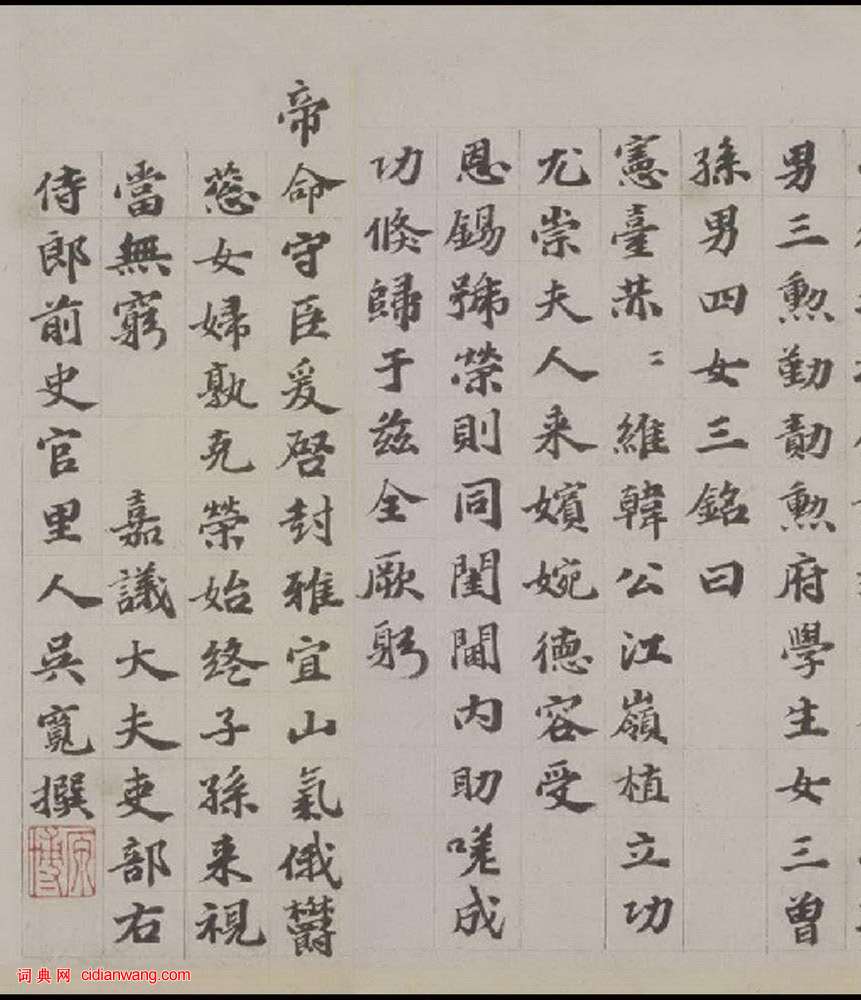 男三勲勤勣勲府學生女三曾
孫男四女三銘曰
憲臺恭〻維韓公江嶺植立功
尤崇夫人来嬪婉德容受
恩錫號榮則同閨閫内助嗟成
功倏歸于兹全厥躬
帝命守臣爰啓封雅宜山氣俄鬱
慈女婦孰克榮始終子孫来視
當無窮 嘉議大夫吏部右
侍郎前史官里人吳寬撰
原博
词典网 cidianwang.com